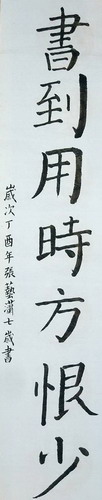 書到用時方恨少
歲次丁酉年張藝瀟七歲書